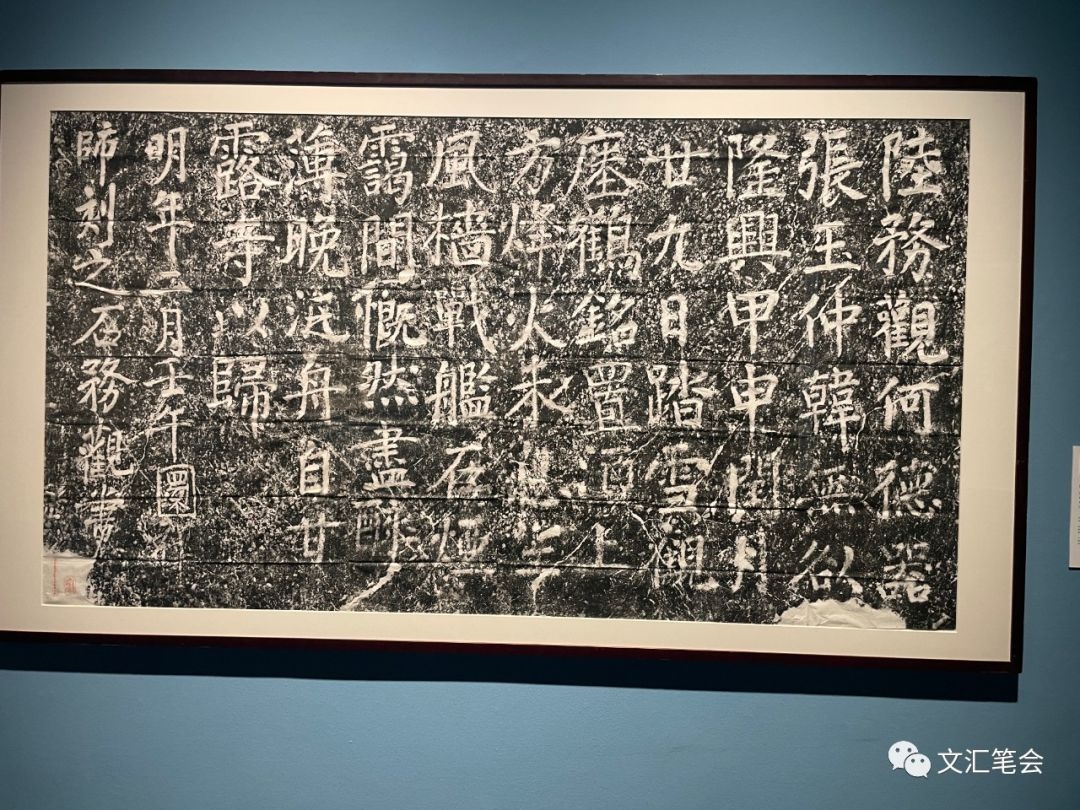 陸務觀何德器
張玉仲韓無咎
隆興甲申閏月
廿九日踏雪觀
瘞鶴銘置酒上
方烽火未
風檣戰艦在煙
靄間慨然盡醉
薄晚泛舟自甘
露寺以歸
明年二月壬午圜
師刻之石務觀書
文汇笔会